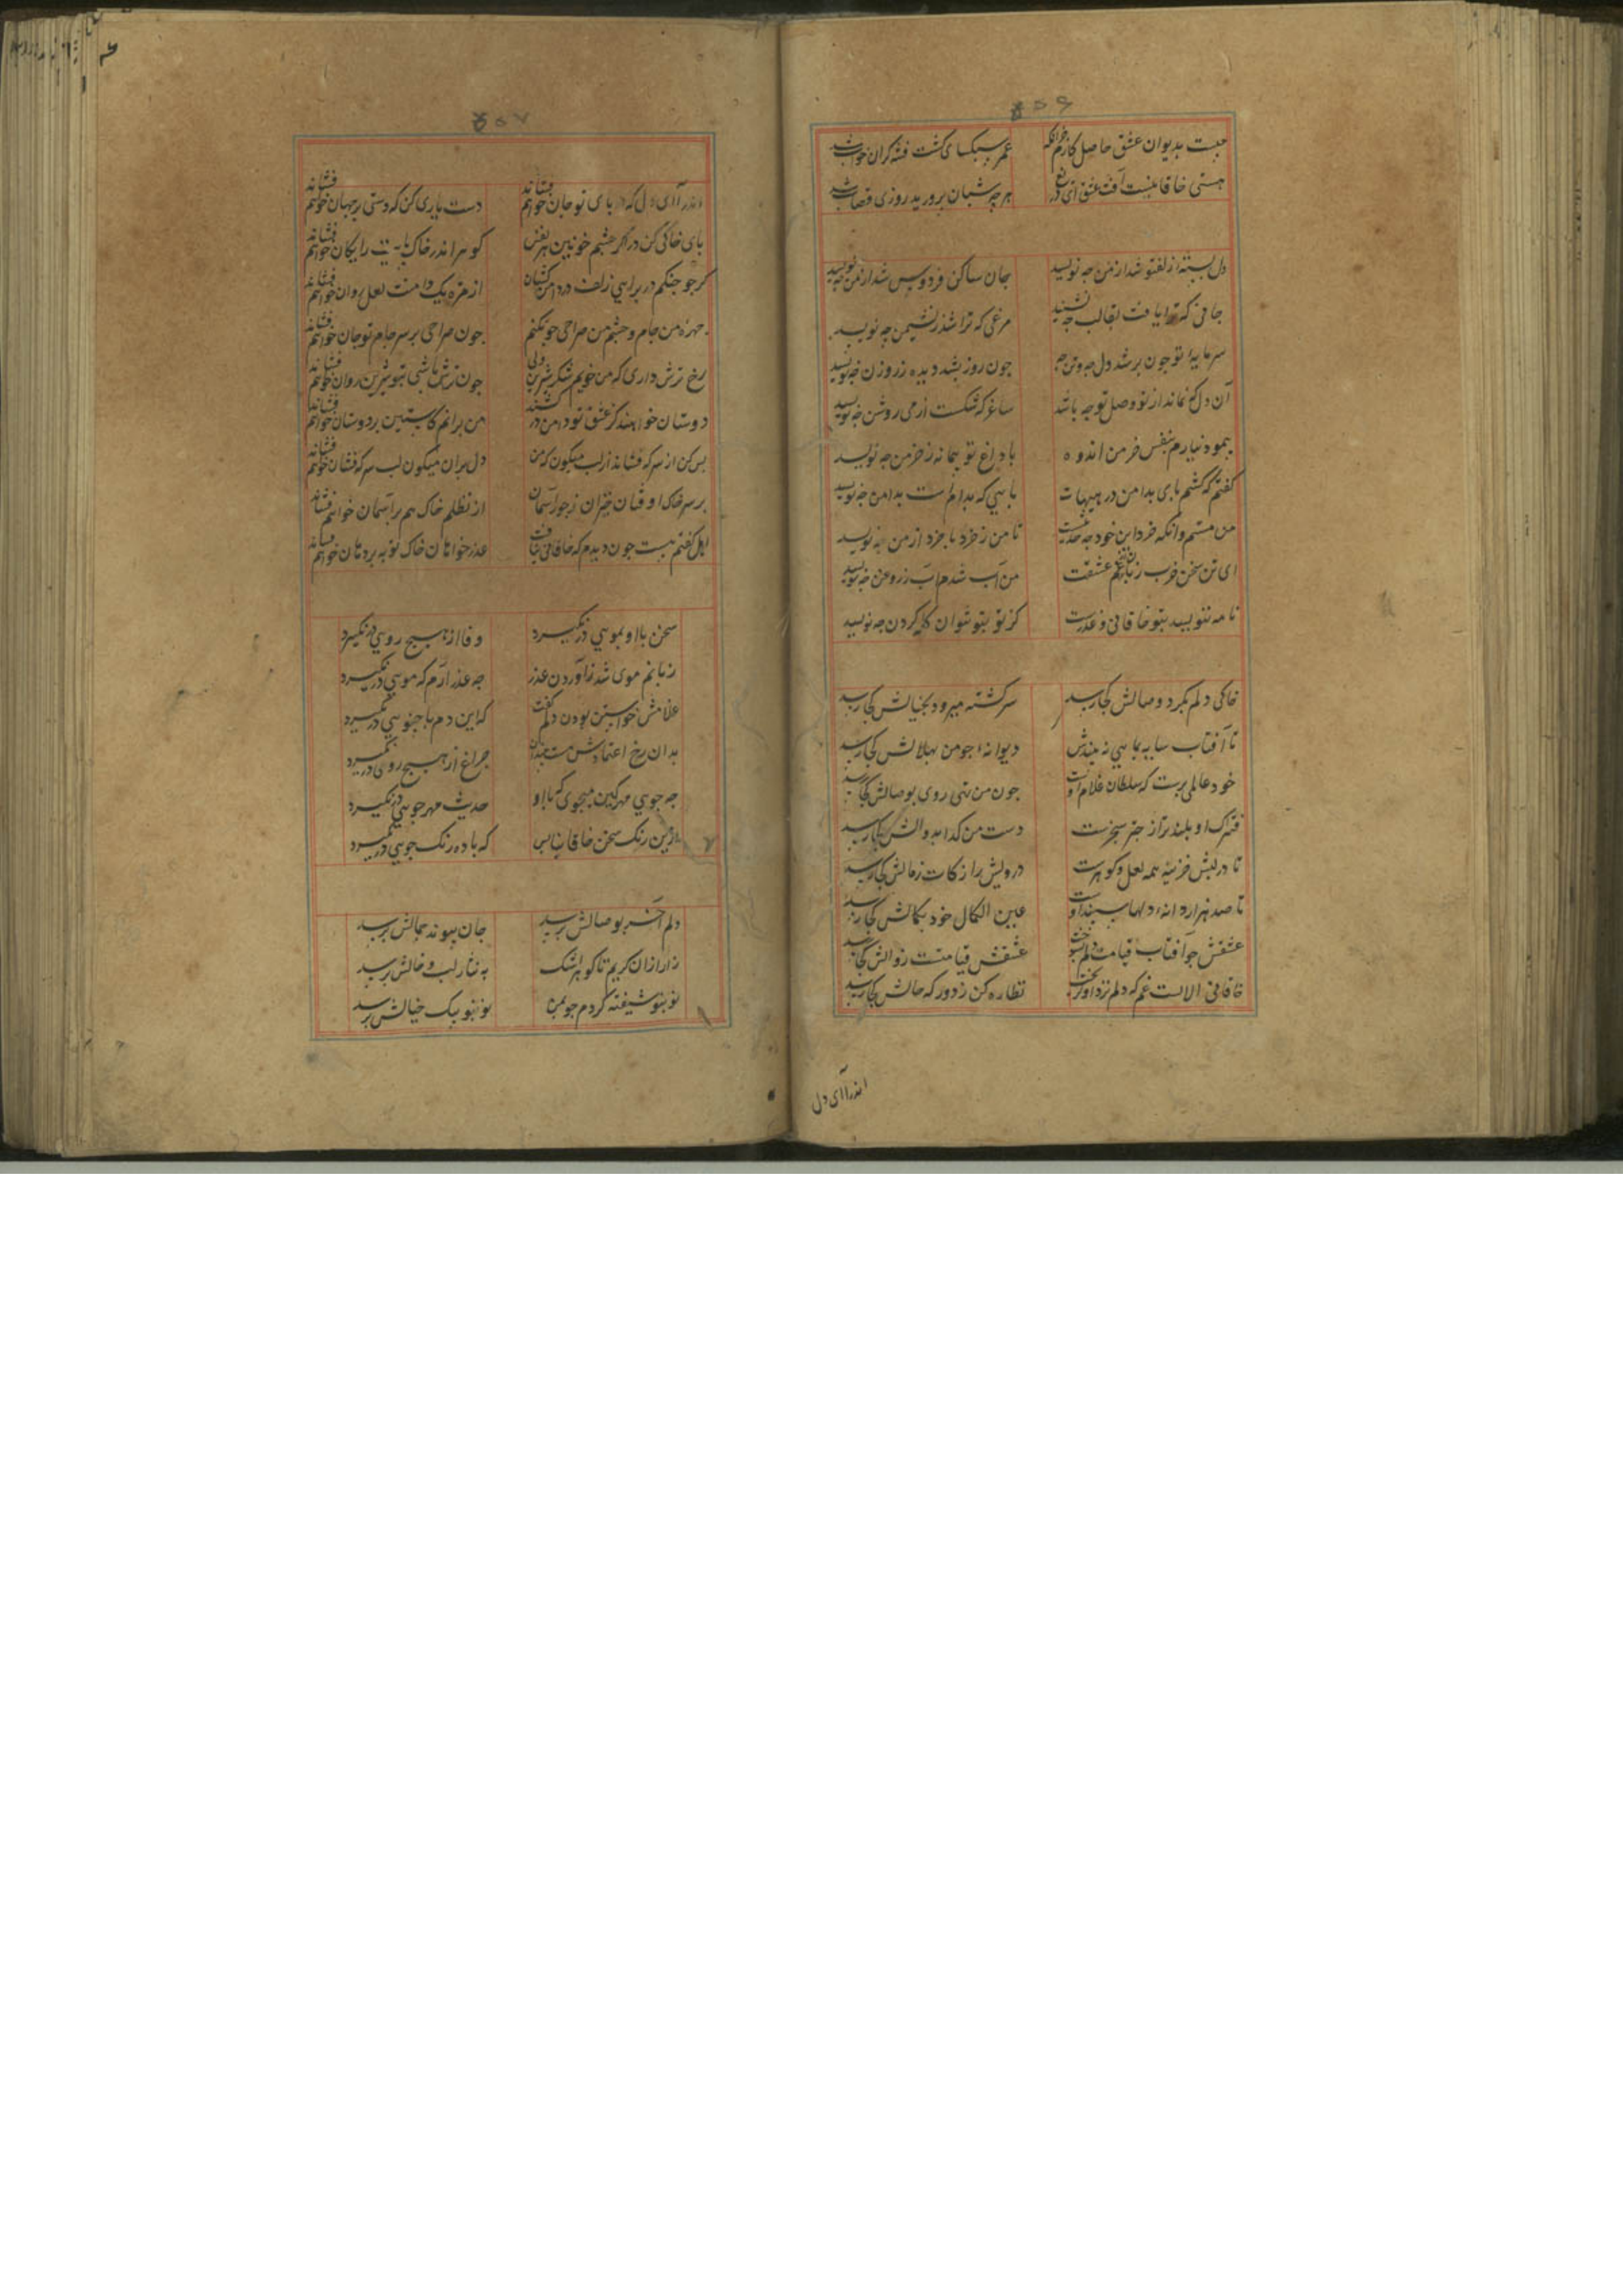 ۵۰۶
چیست بدیوان عشق حاصل کارم جز آنکه عمر سبکپای گشت فتنه گران خواب شد
هستی خاقانیست آفت عشق ای دریغ هر چه شبان پرورید روزی قصاب شد
دل بسته زلف تو شد از من چه نویسد جان ساکن فردوس شد از من چه نویسد
جانی که ترا یافت بقالب چه نشیند مرغی که ترا شد ز نشیمن چه نویسد
سرمایه تو جون بر شد دل چه و تن چه جون روز بشد دیده ز روزن چه نویسد
آن دل که نماند از تو و وصل تو چه باشد ساغر که شکست از می روشن چه نویسد
پیمود نیارم بنفس خرمن اندوه با داغ تو پیمانه ز خرمن چه نویسد
گفتم که کشم پای بدامن در هیهات پایی که بدام است بدامن چه نویسد
من مستم و آنکه خرد این خود چه حدیثست تا من ز خرد یا خرد از من چه نویسد
ای تن سخن خرب زبان غم عشقت من آب شدم آب ز روغن چه نویسد
نامه ننویسد بتو خاقانی و عذرست کز تو بتو نتوان گله کردن چه نویسد
خاکی دلم بگرد وصالش کجا رسد سرگشته میرود بخیالش کجا رسد
تا آفتاب سایه بمایی نه بیندش دیوانه جو من بهلالش کجا رسد
خود عالمی پرست که سلطان غلام اوست جون من تهی روی بوصالش کجا رسد
فتراک او بلندتر از چتر سنجرست دست من گدا بدوالش کجا رسد
تا در لبش خزینه همه لعل و گوهرست درویش را زکات ز مالش کجا رسد
تا صد هزار دانه دلها سپند اوست عین الکمال خود بکمالش کجا رسد
عشقش جو آفتاب قیامت دلم بسوخت عشقش قیامتست زوالش کجا رسد
خاقانی الاست غم که دلم نزد او گریخت نظاره کن ز دور که حالش کجا رسد
اندر آ ای دل
۵۰۷
اندر آ ای دل که در پای تو جان خواهم فشاند دست یاری کن که دستی بر جهان خواهم فشاند
پای خاکی کن در آ کز چشم خونین هر نفس گوهر اندر خاک پایت رایگان خواهم فشاند
گر جو چنگم در بر آیی زلف در دامن کشان از مژه یک دامنت لعل روان خواهم فشاند
جهره من جام و چشم من صراحی جو بگنم جون صراحی بر سر جام تو جان خواهم فشاند
رخ ترش داری که من خوبم شکر شیرین ولی جون ترش باشی بتو شیرین روان خواهم فشاند
دوستان خواهند کز عشق تو دامن در کشند من برانم کاستین بر دوستان خواهم فشاند
بس کن از سرکه فشاند از لب میگون که من دل بران میگون لب سرکه فشان خواهم فشاند
بر سر خاک اوفتان خیزان ز جور آسمان از تظلم خاک هم بر آسمان خواهم فشاند
اهل گفتم هست جون دیدم که خاقانی نیافت عذر خواتان خاک توبه بر دهان خواهم فشاند
سخن با او بمویی در نگیرد وفا از هیچ رویی در نگیرد
زبانم موی شد ز آوردن عذر چه عذر آرم که مویی در نگیرد
غلامش خواستن بودن دلم گفت که این دم با جنویی در نگیرد
بدان رخ اعتمادش هست جندان چراغ از هیچ رویی در نگیرد
چه جویی مهر کین میجوی که با او حدیث مهر جویی در نگیرد
ازین رنگ سخن خاقانیا بس که با ده رنگ جویی در نگیرد
دلم آخر بوصالش برسد جان بپیوند جمالش برسد
زار از ان گریم تا گوهر اشک به نثار لب و خالش برسد
نو بنو شیفته گردم جو بمن نو بنو پیک خیالش برسد